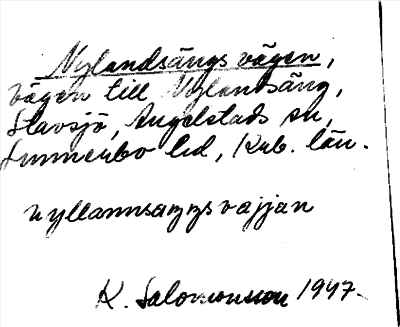 Nylandsängs vägen,
Vägen till Nylandsäng,
Slavsjö, Angelstads sn,
Sunnerbo hd, Krb. län.
nyllannsaŋŋsvajjan
K. Salomonsson 1947.